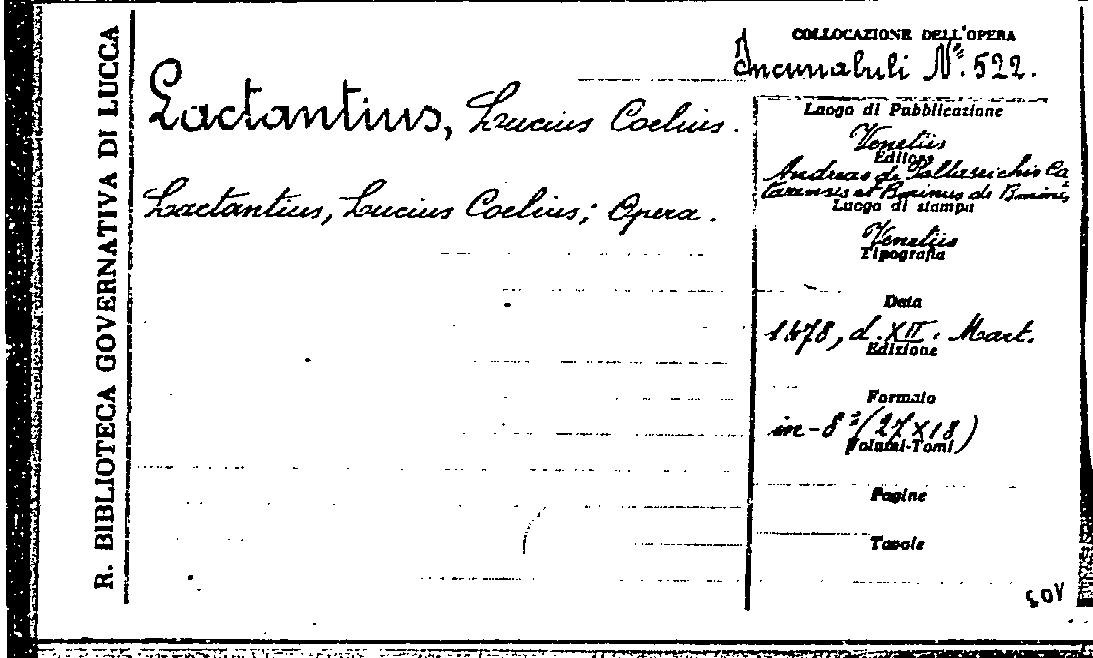 R. BIBLIOTECA GOVERNATIVA DI LUCCA
Lactantius, Lucius Coelius.
Lactantius, Lucius Coelius; Opera.
COLLOCAZIONE DELL'OPERA
Incunabuli Nº. 522.
Luogo di Pubblicazione
Venetiis
Editore
Andreas de Paltasichis Ca
tarensis et Boninus de Boninis
Luogo di stampa
Venetiis
Tipografia
Data
1478, d. XII. Mart.
Edizione
Formato
in-8º (27x18)
Volumi-Tomi
Pagine
Tavole